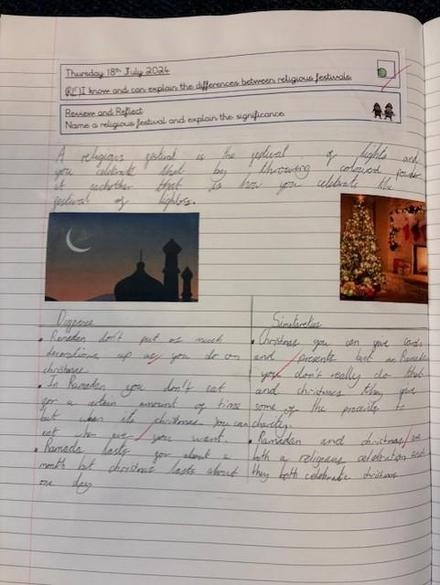 Thursday 18th July 2024
(RE) I know and can explain the differences between religious festivals
Review and Reflect
Name a religious festival and explain the significance
A religious festival is the festival of lights and
you celebrate that by throwing coloured powder
at eachother that is how you celebrate the
festival of lights.
Similarities
• Ramadan don't put as much
decorations up as you do on
christmas
• In Ramadan you don't eat
for a sertain amount of time
but when its christmas you can
eat when ever you want.
• Ramada lasts for about a
month but christmas lasts about
one day
• Christmas you can give cards
and presents but on Ramadan
you don't really do that
and christmas they give
some of the to
charity.
• Ramadan and christmas are
both a religeous celebration and
they both celebrate christmas